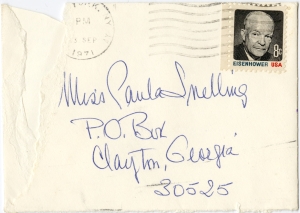 PM
1971
8c
EISENHOWER USA
Miss Paula Snelling
P.O. Box
Clayton, Georgia
30525